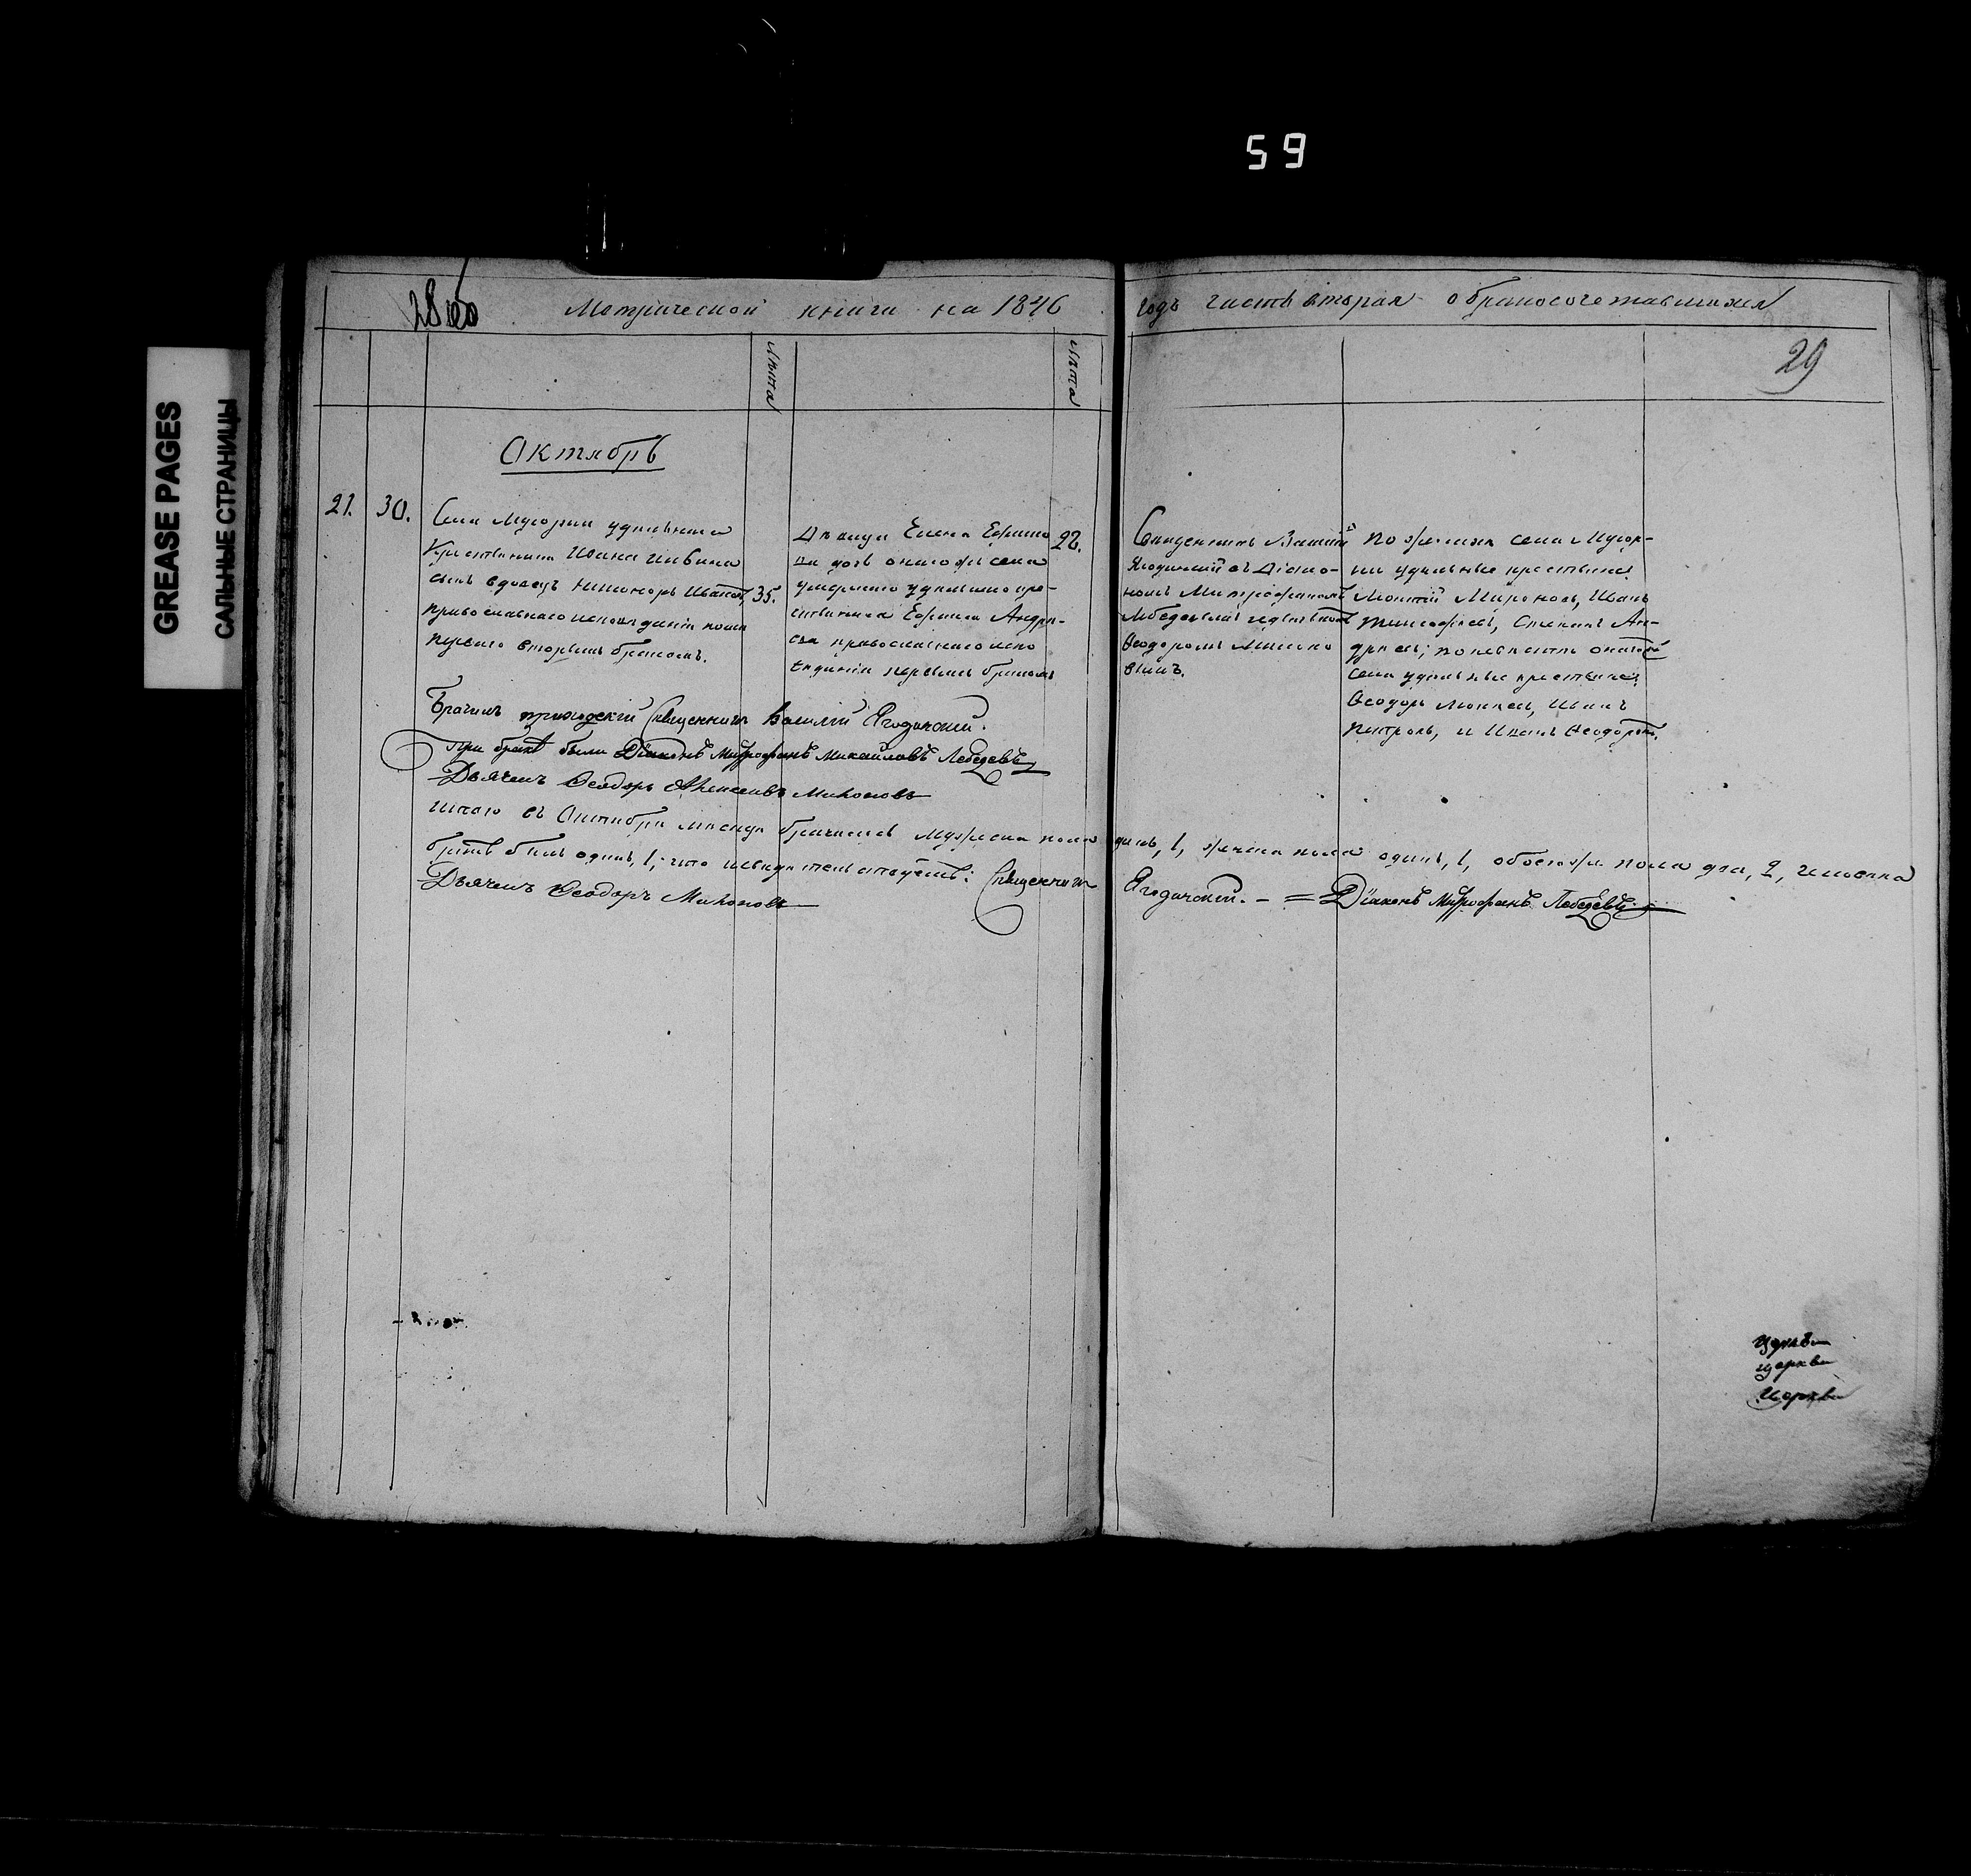 59
GREASE PAGES
САЛЬНЫЕ СТРАНИЦЫ
Метрической книги на 1846 годъ часть вторая о бракосочетавшихся
29
лѣта
лѣта
Октябрь
21. 30.
Села Мусорки удѣльнаго
крестьянина Ивана
сынъ вдовецъ Никаноръ Ивановъ, 35.
православнаго исповѣданія послѣ
перваго вторымъ бракомъ.
Дѣвица Елена Ефимо
ва дочь онаго же села
умершаго удѣльнаго кре-
стьянина Ефима Андре-
ева православнаго испо
вѣданія первымъ бракомъ
22.
Священникъ Василій
Ягодинскій съ Діако-
номъ Митрофаномъ
Лебедевымъ
Ѳеодоромъ
вымъ.
По женихѣ села Мусор-
ки удѣльные крестьяне:
Миронъ, Иванъ
Тимофеевъ, Степанъ Ан-
дреевъ; по невѣстѣ онагоже
села удѣльные крестьяне:
Ѳеодоръ Иванъ
Петровъ, и Иванъ Ѳеодоровъ.
Брачилъ приходскій Священникъ Василій Ягодинскій.
При бракѣ были Діаконъ Митрофанъ Михайловъ Лебедевъ
Дьячекъ Ѳеодоръ Алексеевъ
Итого въ Октябрѣ месяцѣ брачилось мужеска пола одинъ, 1, женска пола одинъ, 1, обоегоже пола два, 2, человека
бракъ былъ одинъ, 1, что и свидетельствуемъ: Священникъ Ягодинскій. - = Діаконъ Митрофанъ Лебедевъ
Дьячекъ Ѳеодоръ
церкви
церкви
Церкви